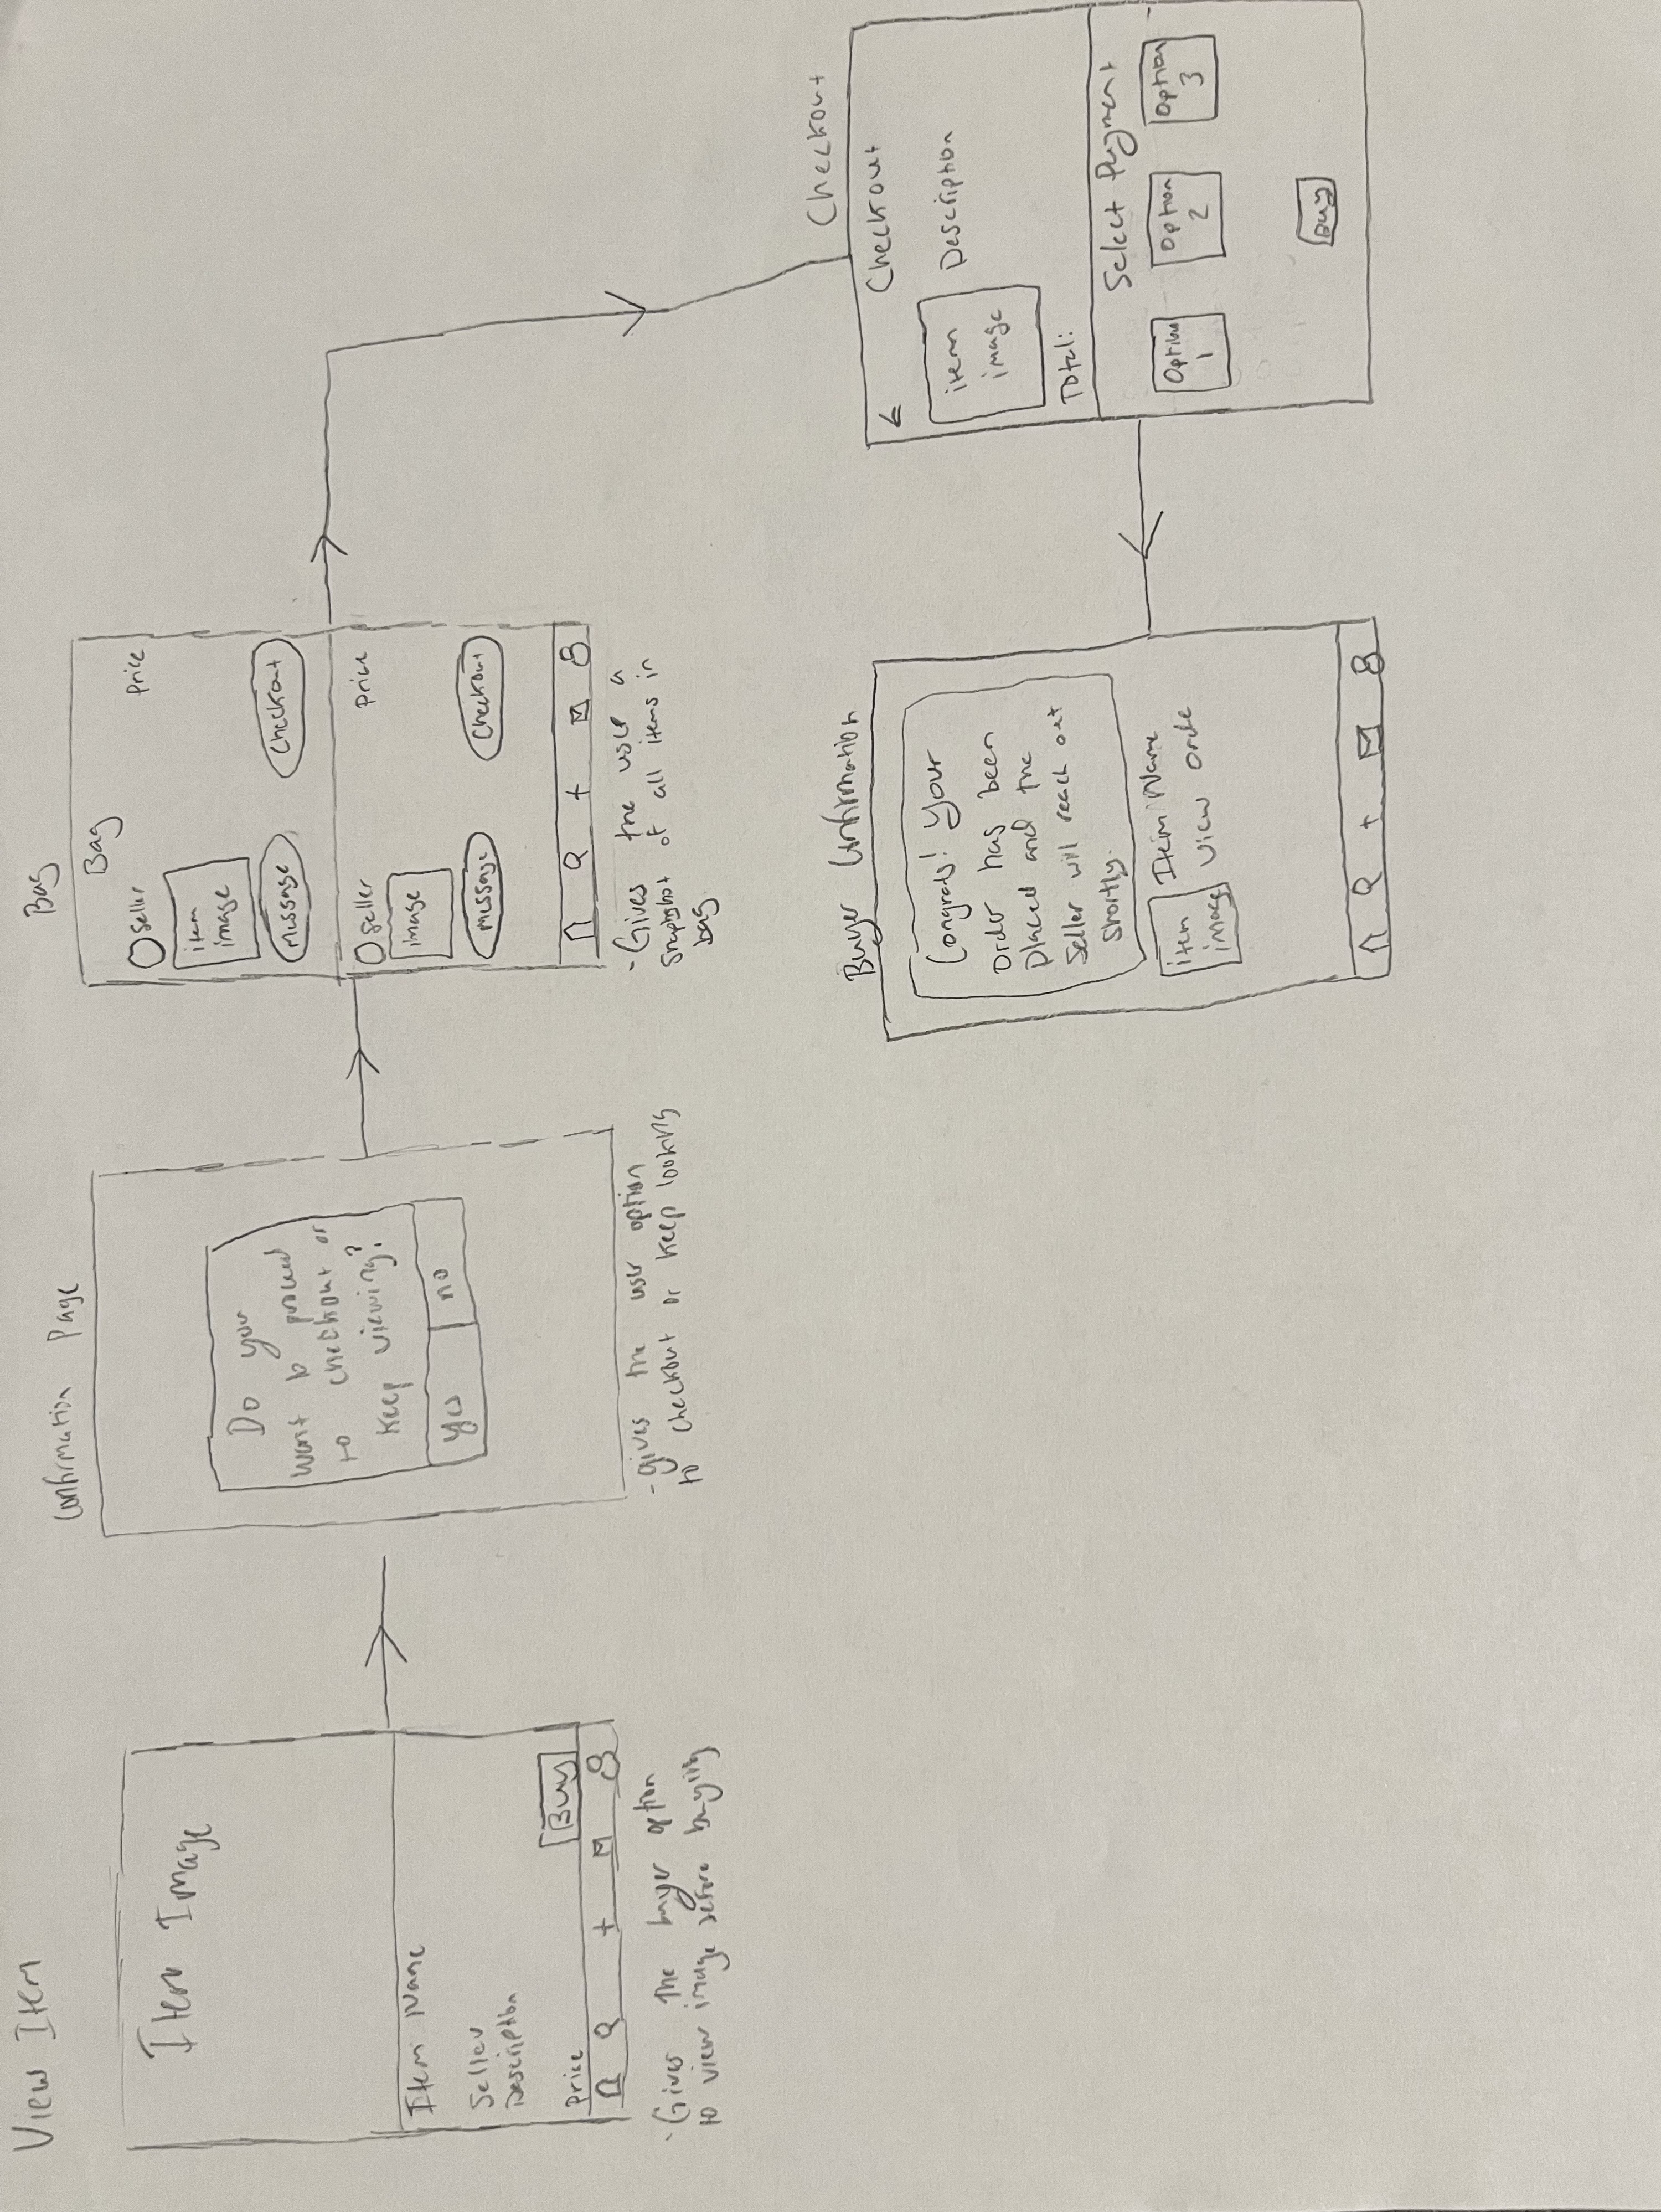 View Item
Item Image
Item Name
Seller
Description
Price
Buy
- Gives The buyer option
to view image before buying
Confirmation Page
Do you
want to proceed
to checkout or
keep viewing?
Yes
no
- gives the user option
to checkout or keep looking
Bag
Bag
Seller
Price
item
image
message
Checkout
Seller
Price
image
message
Checkout
- Gives the user a
snapshot of all items in
bag
Checkout
Checkout
item
image
Description
Total:
Select Payment
Option
1
Option
2
Option
3
Buy
Buyer Confirmation
Congrats! Your
order has been
placed and the
seller will reach out
shortly.
item
image
Item Name
View orde